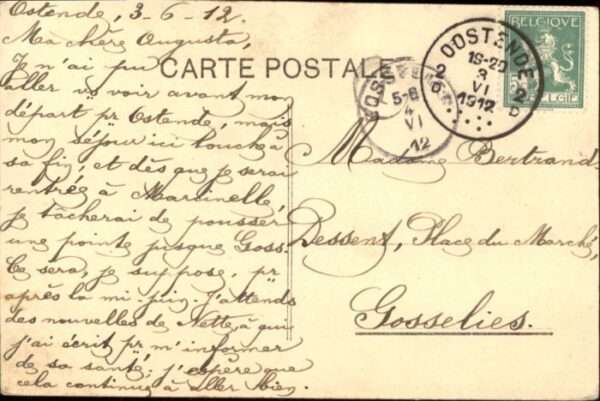 Ostende, 3-6-12.
Ma chère Augusta,
Je n'ai pu
aller vs voir avant mon
départ pr Ostende, mais
mon séjour ici touche à
sa fin, et dès que je serai
rentrée à Marcinelle,
je tâcherai de pousser
une pointe jusque Goss.
Ce sera, je suppose, pr
après la mi-juin. J'attends
des nouvelles de Nette, à qui
j'ai écrit pr m'informer
de sa santé; j'espère que
cela continue à aller bien.
CARTE POSTALE
GOSSELIES
5-6
4
VI
12
OOSTENDE
2 2
19-20
3
VI
1912
D
BELGIQUE
Madame Bertrand-
Dessent, Place du Marché,
Gosselies.